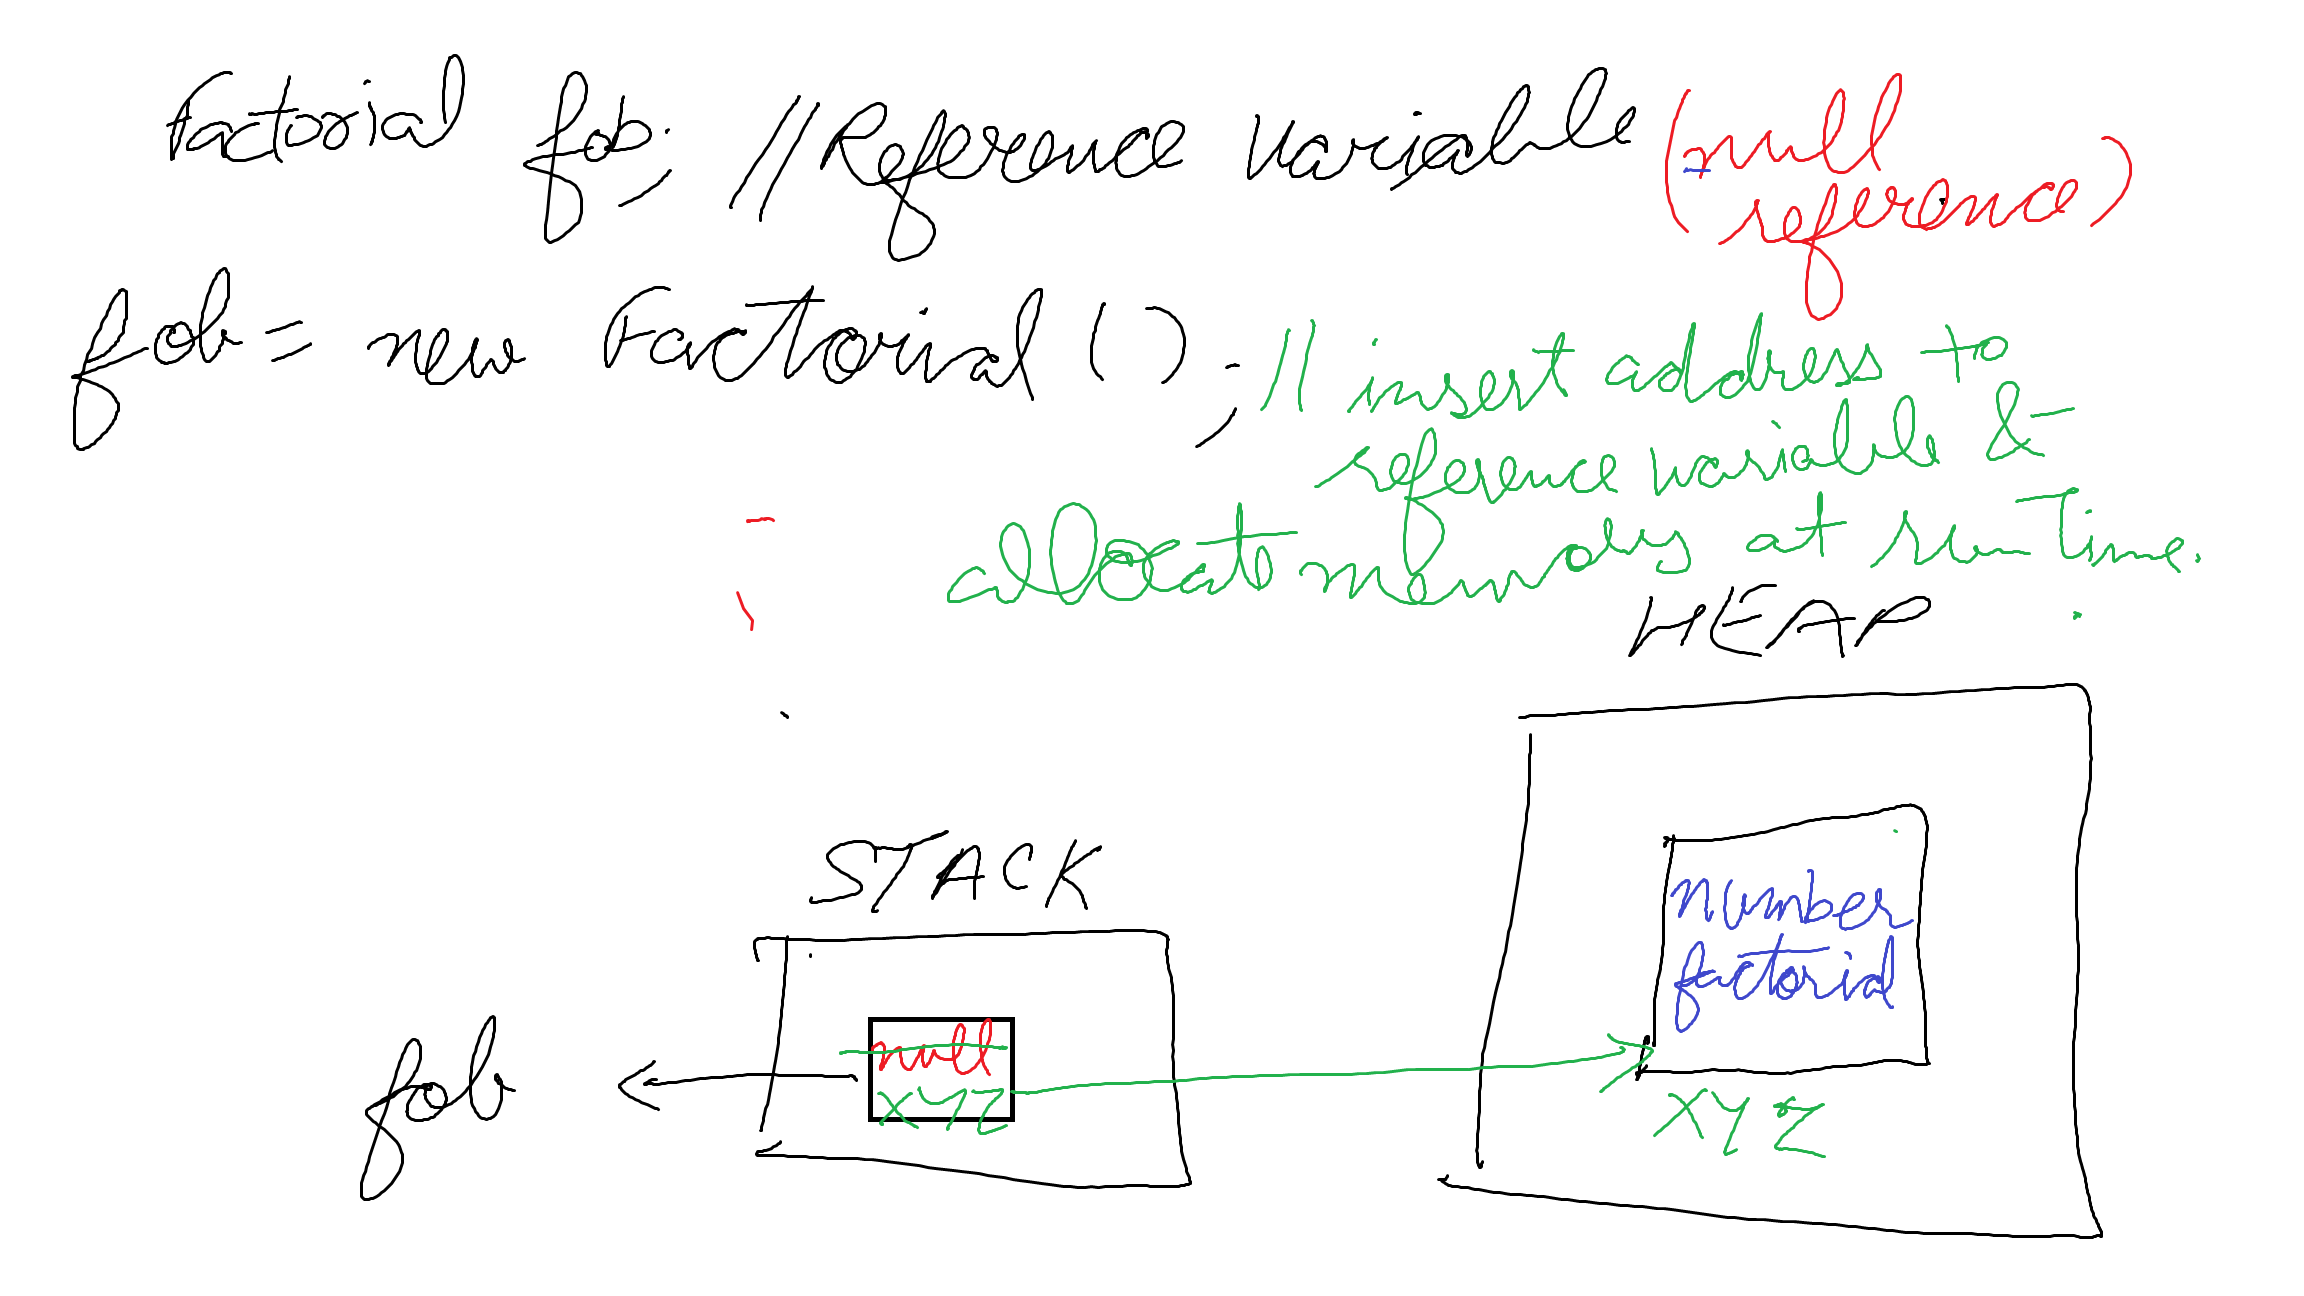 Factorial fob; //Reference Variable (null
reference)
fob = new Factorial (); // insert address to
reference variable &
allocate memory at run Time.
HEAP
STACK
number
factorial
fob
null
XYZ
XYZ